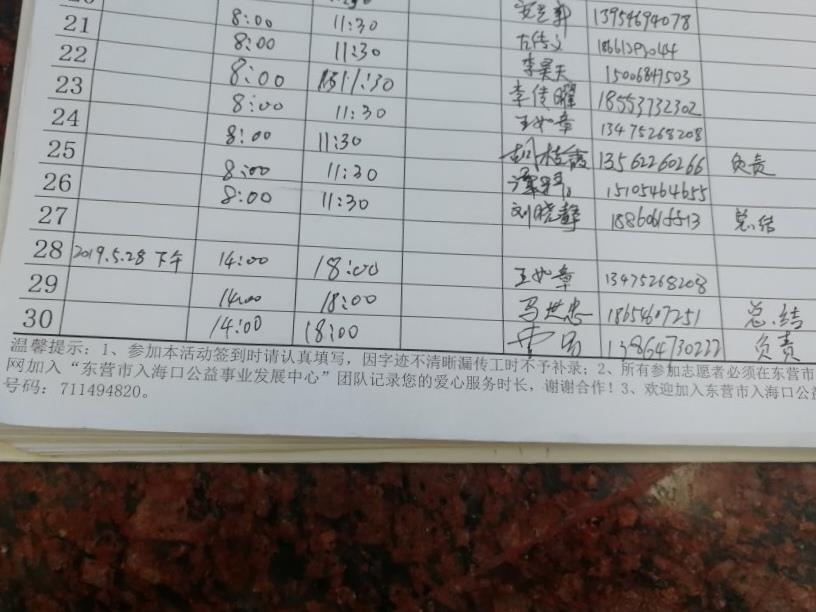 21 8:00 11:30 13954694078
22 8:00 11:30 左传文
23 8:00 11:30 李昊天 15006847503
24 8:00 11:30 李传曜 18553732302
25 8:00 11:30 王如章 13475268208
26 8:00 11:30 胡桂霞 13562260266 负责
27 8:00 11:30 15105464655
刘晓静 总结
28 2019.5.28 下午 14:00 18:00 王如章 13475268208
29 14:00 18:00 马世忠 18654607251 总结
30 14:00 18:00 13864730222 负责
温馨提示：1、参加本活动签到时请认真填写，因字迹不清晰漏传工时不予补录；2、所有参加志愿者必须在东营市
网加入“东营市入海口公益事业发展中心”团队记录您的爱心服务时长，谢谢合作！3、欢迎加入东营市入海口公益
号码：711494820。